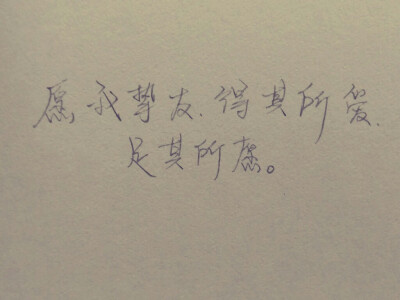 愿我挚友、得其所爱、
足其所愿。